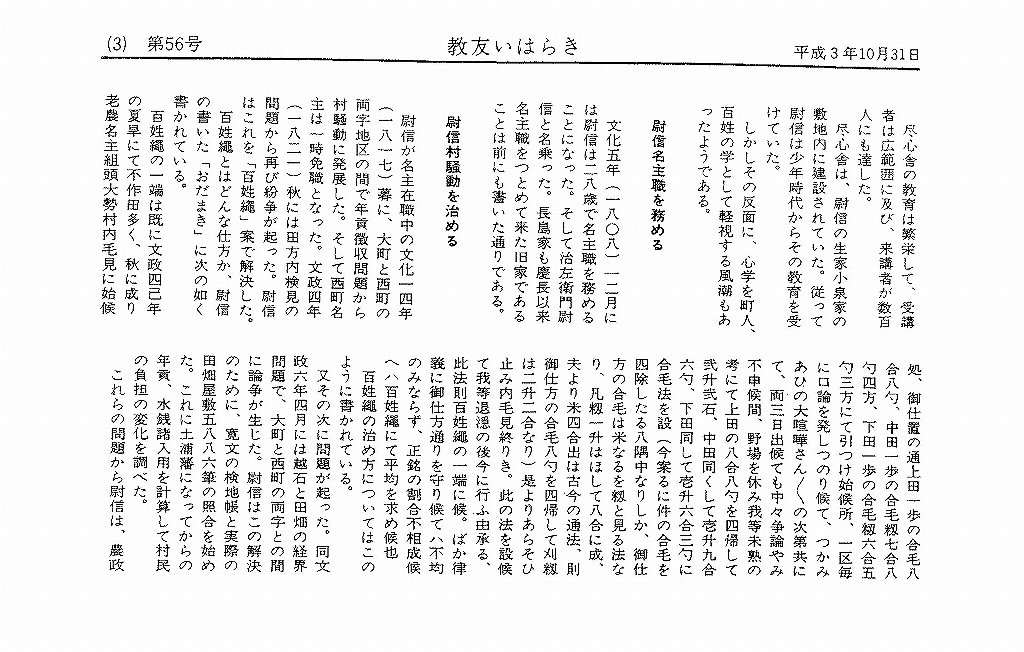 (3) 第56号
教友いはらき
平成3年10月31日
尽心舎の教育は繁栄して、受講
者は広範囲に及び、来講者が数百
人にも達した。
尽心舎は、尉信の生家小泉家の
敷地内に建設されていた。従って
尉信は少年時代からその教育を受
けていた。
しかしその反面に、心学を町人、
百姓の学として軽視する風潮もあ
ったようである。
尉信名主職を務める
文化五年（一八〇八）一二月に
は尉信は二八歳で名主職を務める
ことになった。そして治左衛門尉
信と名乗った。長島家も慶長以来
名主職をつとめて来た旧家である
ことは前にも書いた通りである。
尉信村騒動を治める
尉信が名主在職中の文化一四年
（一八一七）暮に、大町と西町の
両字地区の間で年貢徴収問題から
村騒動に発展した。そして西町名
主は一時免職となった。文政四年
（一八二一）秋には田方内検見の
問題から再び紛争が起った。尉信
はこれを「百姓縄」案で解決した。
百姓縄とはどんな仕方か、尉信
の書いた「おだまき」に次の如く
書かれている。
百姓縄の一端は既に文政四己年
の夏旱にて不作田多く、秋に成り
老農名主組頭大勢村内毛見に始候
処、御仕置の通上田一歩の合毛八
合八勺、中田一歩の合毛籾七合八
勺四方、下田一歩の合毛籾六合五
勺三方にて引つけ始候所、一区毎
に口論を発しつのり候て、つかみ
あひの大喧嘩さん／＼の次第共に
て、両三日出候ても中々争論やみ
不申候間、野場を休み我等未熟の
考にて上田の八合八勺を四帰して
弐升弐石、中田同くして壱升九合
六勺、下田同して壱升六合三勺に
合毛法を設（今案るに件の合毛を
四除したる八隅中なりしか、御仕
方の合毛は米なるを籾と見る法な
り、凡籾一升はほして八合に成、
夫より米四合出は古今の通法、則
御仕方の合毛八勺を四帰して刈籾
は二升二合なり）是よりあらそひ
止み内毛見終りき。此の法を設候
て我等退隠の後今に行ふ由承る、
此法則百姓縄の一端に候。ばか律
義に御仕方通りを守り候てハ不均
のみならず、正銘の割合不相成候
へハ百姓縄にて平均を求め候也
百姓縄の治め方についてはこの
ように書かれている。
又その次に問題が起った。同文
政六年四月には越石と田畑の経界
問題で、大町と西町の両字との間
に論争が生じた。尉信はこの解決
のために、寛文の検地帳と実際の
田畑屋敷五八八六筆の照合を始め
た。これに土浦藩になってからの
年貢、水銭諸入用を計算して村民
の負担の変化を調べた。
これらの問題から尉信は、農政